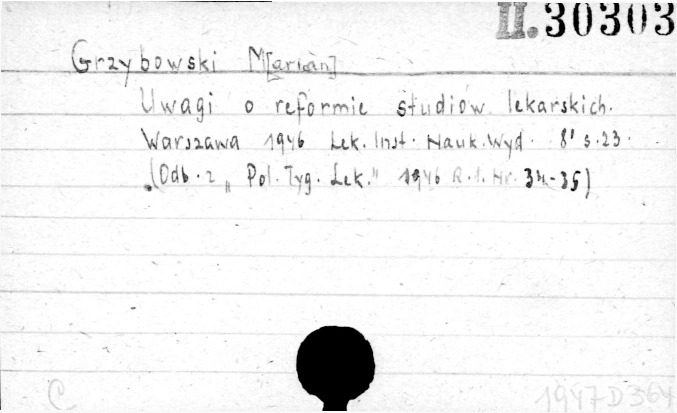 II.30303
Grzybowski M[arian]
Uwagi o reformie studiów lekarskich.
Warszawa 1946 Lek. Inst. Nauk. Wyd. 8° s. 23.
(Odb. z „Pol. Tyg. Lek." 1946 R. 1. Nr. 34-35)
C
1947 D 364